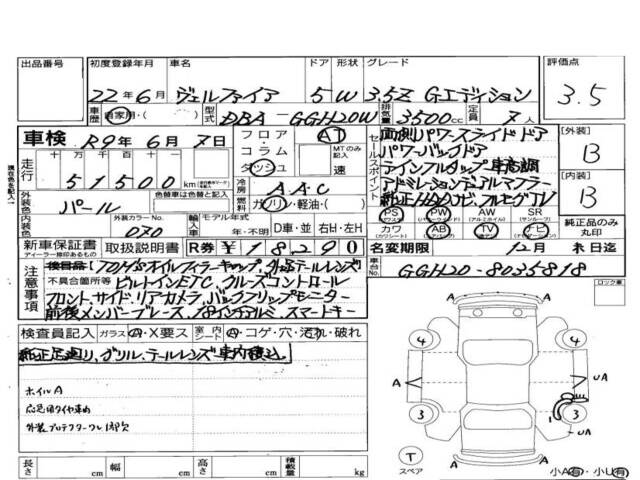 出品番号 初度登録年月 車名 ドア 形状 グレード 評価点
22年6月 ヴェルファイア 5 W 3.5Z Gエディション 3.5
車歴 自家用・( ) 型式 DBA-GGH20W 排気量 3500cc 定員 7人
車検 R9年6月7日
フロア・コラム ダッシュ AT MTのみ記入 速
走行 十万 万 千 百 十 51500 km
冷房 AAC
燃料 ガソリン・軽油・( )
外装色 パール 色替車は色替と記入
内装色 外装カラーNo. 070
輸入車 モデル年式 年・不明 D車・並 右H・左H
セールスポイント
両側パワースライドドア
パワーバックドア
アルパインフルタップ車高調
アドミレーションデュアルマフラー
純正HDDナビ、フルセグTV
PS PW AW SR
カワ AB TV ナビ
[外装] B
[内装] B
純正品のみ丸印
新車保証書 取扱説明書 R券 ¥18290 名変期限 12月末日迄
車台No. GGH20-8035818
注意事項 不具合箇所等
ビルトインETC、クルーズコントロール
フロント、サイド、リアカメラ、バックフリップモニター
前後メンバーブレース、18インチアルミ、スマートキー
検査員記入 ガラス A・X要ス 室内シート A・コゲ・穴・汚れ・破れ
純正足廻り、グリル、テールレンズ車内積込
ホイルA
外装プロテクターワレ1部欠
A
4 4
A UA
3 3
UA
A
T スペア
小A有・小U有
ロック車
長さ cm 幅 cm 高さ cm 積載量 kg